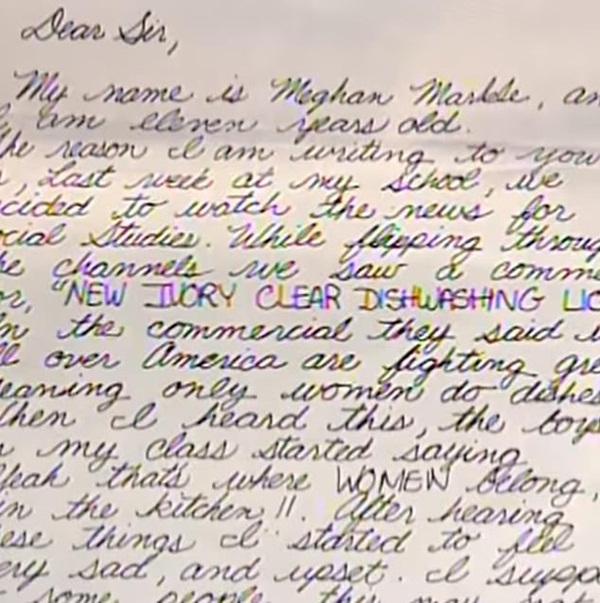 Dear Sir,
My name is Meghan Markle, an
I am eleven years old.
he reason I am writing to you
s, Last week at my school, we
cided to watch the news for
ocial Studies. While flipping throug
he channels we saw a comme
or, "NEW IVORY CLEAR DISHWASHING LIQ
In the commercial they said
ll over America are fighting gre
eaning only women do dishes
When I heard this, the boys
n my class started saying
Yeah thats where WOMEN belong,
in the kitchen !!. After hearing
ese things I started to feel
ery sad, and upset. I supp
some people this may not